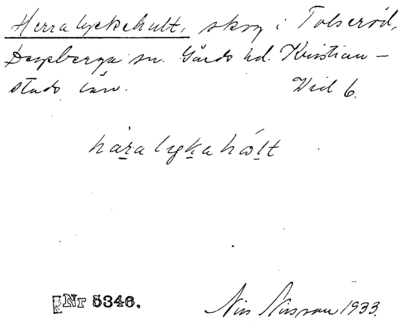 Herralyckehult, skog i Tolseröd,
Degeberga sn. Gärds hd. Kristian-
stads län. Vid 6.
håralykahółt
Nr 5346. Nils Nilsson 1933.